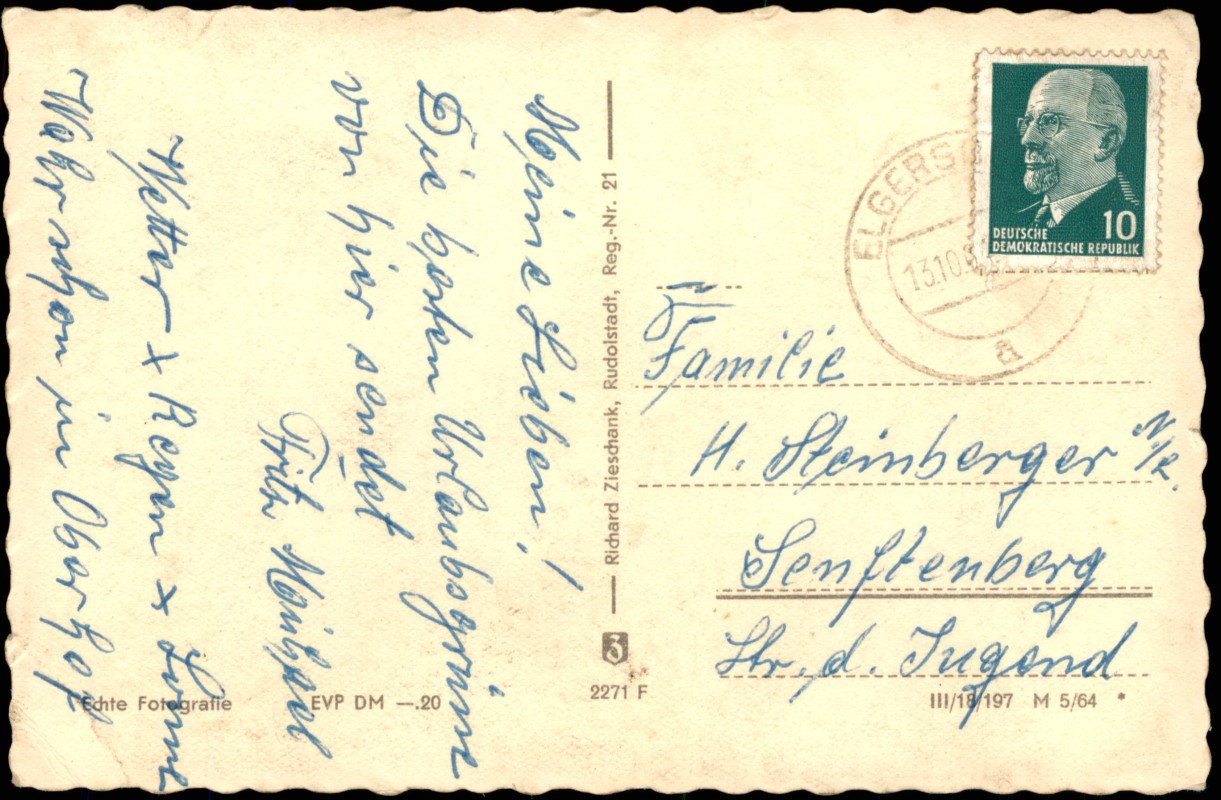 Meine Lieben!
Die besten Urlaubsgrüße
von hier sendet
Fritz
Wetter x Regen x Sonne
Wahr schon in Oberhof
Richard Zieschank, Rudolstadt, Reg.-Nr. 21
2271 F
Echte Fotografie
EVP DM —.20
10
DEUTSCHE
DEMOKRATISCHE REPUBLIK
13.10.
a
Familie
H. Steinberger
Senftenberg
Str. d. Jugend
III/18/197 M 5/64